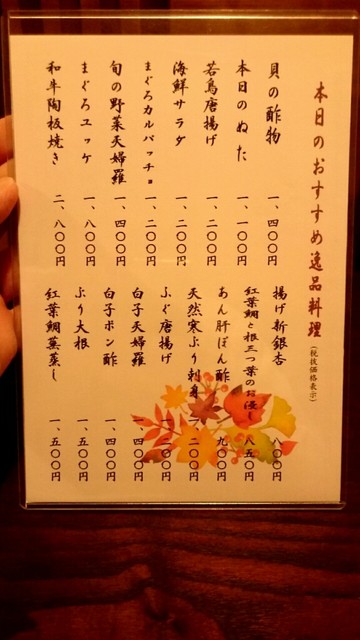 本日のおすすめ逸品料理
(税抜価格表示)
貝の酢物 一、四〇〇円
本日のぬた 一、一〇〇円
若鳥唐揚げ 一、二〇〇円
海鮮サラダ 一、二〇〇円
まぐろカルパッチョ 一、二〇〇円
旬の野菜天婦羅 一、四〇〇円
まぐろユッケ 一、八〇〇円
和牛陶板焼き 二、八〇〇円
揚げ新銀杏 八〇〇円
紅葉鯛と根三つ葉のお浸し 八五〇円
あん肝ぽん酢 九〇〇円
天然寒ぶり刺身 二〇〇円
ふぐ唐揚げ 二〇〇円
白子天婦羅 四〇〇円
白子ポン酢 一、四〇〇円
ぶり大根 一、五〇〇円
紅葉鯛蕪蒸し 一、五〇〇円